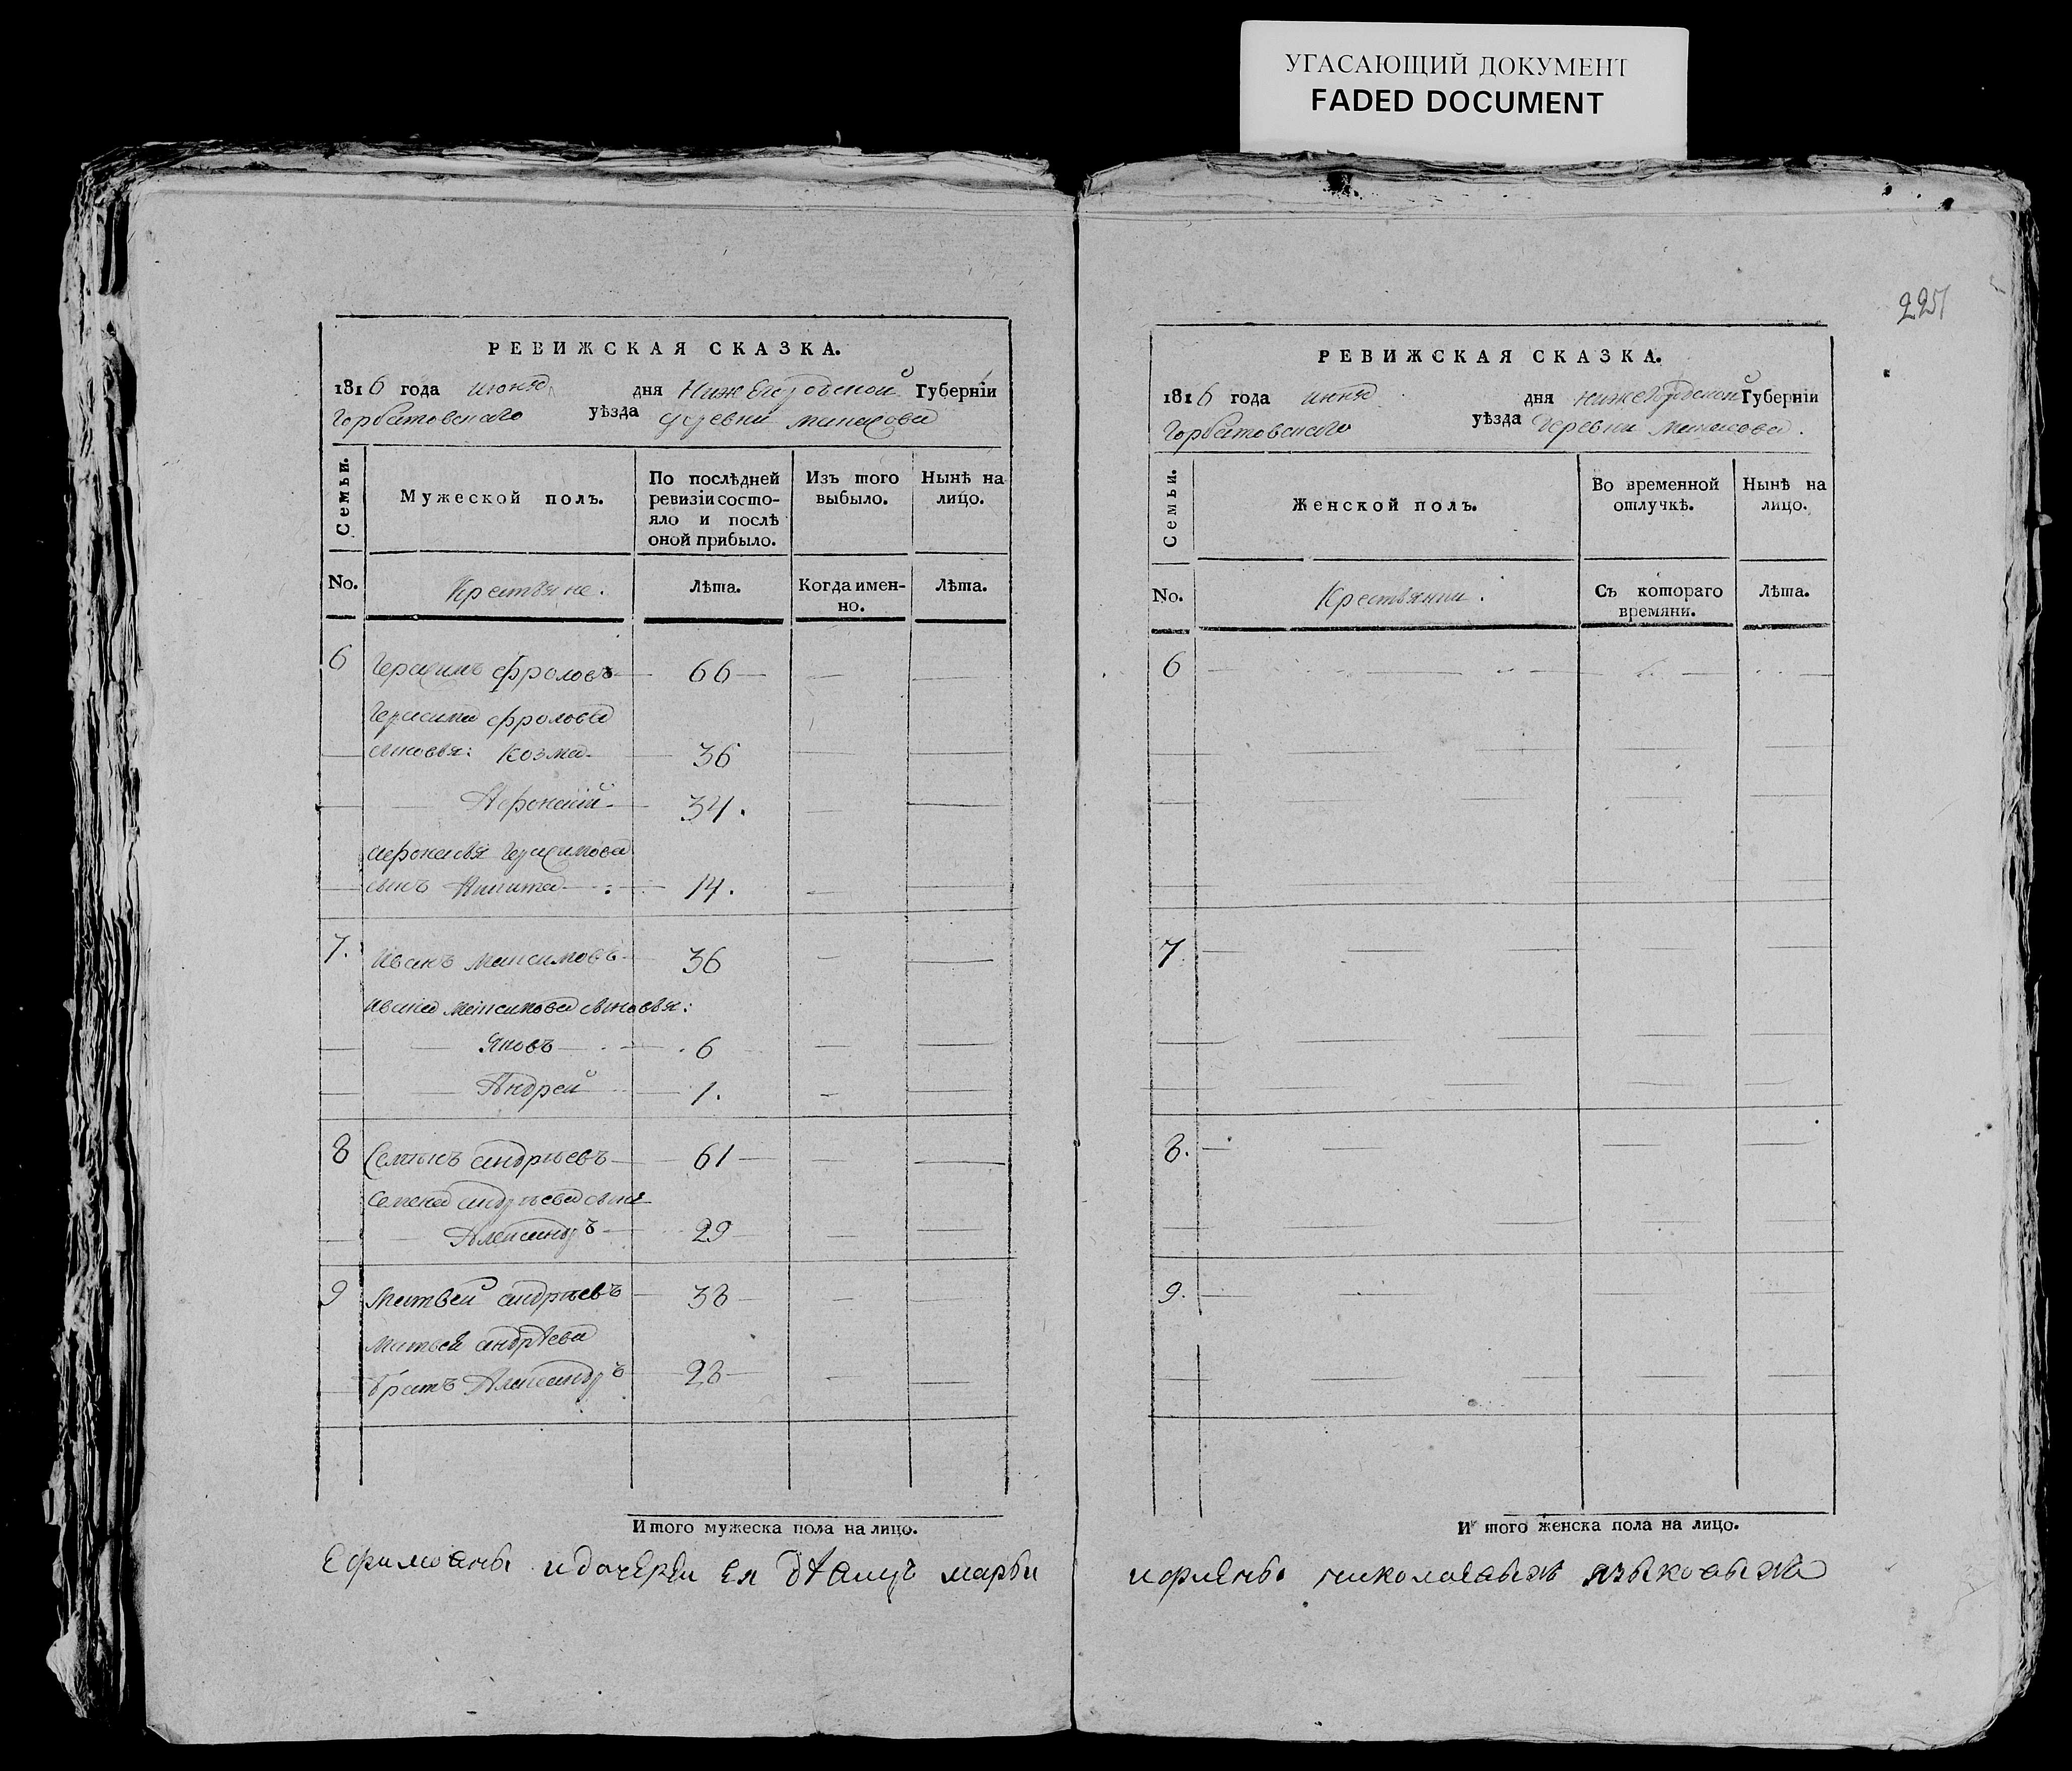 УГАСАЮЩИЙ ДОКУМЕНТ
FADED DOCUMENT
РЕВИЖСКАЯ СКАЗКА.
1816 года июня дня Нижегородской Губерніи
Горбатовскаго уѣзда деревни
Семьи.
Мужеской полъ.
По послѣдней ревизіи состо-
яло и послѣ
оной прибыло.
Изъ того
выбыло.
Нынѣ на
лицо.
No.
Крестьяне.
Лѣта.
Когда имен-
но.
Лѣта.
6 Герасимъ Фроловъ 66
Герасима Фролова
сыновья: Козма 36
Афонасій 34.
Афонасья Герасимова
сынъ Никита 14.
7. Иванъ Максимовъ 36
Ивана Максимова сыновья:
Яковъ 6
Андрей 1.
8 Семенъ андрѣевъ 61
Семена андрѣева сынъ
Александръ 29
9 Матвей андрѣевъ 38
Матвея андрѣева
братъ Александръ 28
Итого мужеска пола на лицо.
Ефимовны и дочерей ея дѣвицъ марьи
225
РЕВИЖСКАЯ СКАЗКА.
1816 года июня дня нижегородской Губерніи
Горбатовскаго уѣзда деревни
Семьи.
Женской полъ.
Во временной
отлучкѣ.
Нынѣ на
лицо.
No.
Съ котораго
времяни.
Лѣта.
6
7.
8.
9.
И того женска пола на лицо.
николаевыхъ языковыхъ